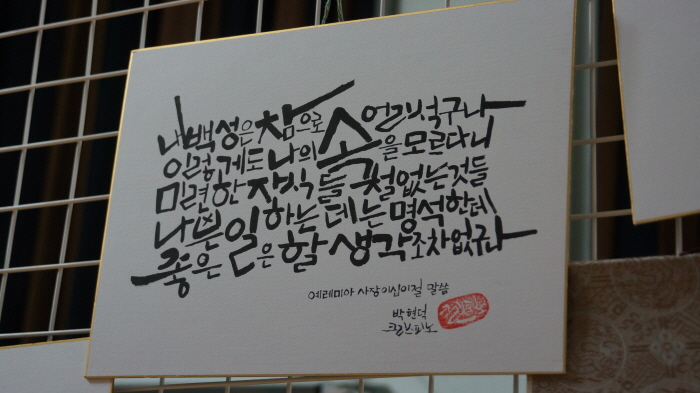 내 백성은 참으로 어리석구나
이렇게도 나의 속을 모르다니
미련한 자식들 철없는것들
나쁜 일 하는데는 명석한데
좋은 일은 할 생각조차 없구나
예레미야 사장이십이절 말씀
박현덕
크리스피노